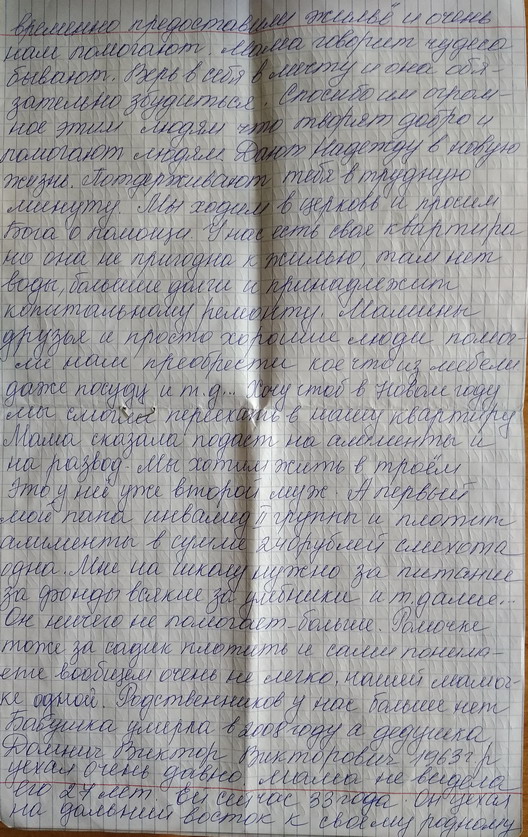 временно предоставили жильё и очень
нам помогают. Мама говорит чудеса
бывают. Верь в себя в мечту и она обя-
зательно збудиться. Спосибо им огром-
ное этим людям что творят добро и
помогают людям. Дают Надежду в новую
жизнь. Потдерживают тебя в трудную
минуту. Мы ходим в церковь и просим
Бога о помощи. У нас есть своя квартира
но она не пригодна к жилью, там нет
воды, большие долги и принадлежит
копитальному ремонту. Мамины
друзья и просто хорошие люди помог-
ли нам преобрести кое что из мебели
даже посуду и т.д... Хочу чтоб в Новом году
мы смогли переехать в нашу квартиру
Мама сказала подаст на алименты и
на развод. Мы хотим жить в троём
Это у неё уже второй муж. А первый
мой папа инвалид II группы и плотит
алименты в сумме 240рублей смехота
одна. Мне на школу нужно за питание
за фонды всякие за учебники и т.далие...
Он ничего не помогает больше. Ромочке
тоже за садик плотить и сами понима-
ете вообщем очень не легко нашей мамоч-
ке одной. Родственников у нас больше нет
Бабушка умерла в 2008 году а дедушка
Виктор Викторович 1963г/р
уехал очень давно мама не видела
его 27 лет. Ей сейчас 33 года. Он уехал
на дальний восток к своему родному